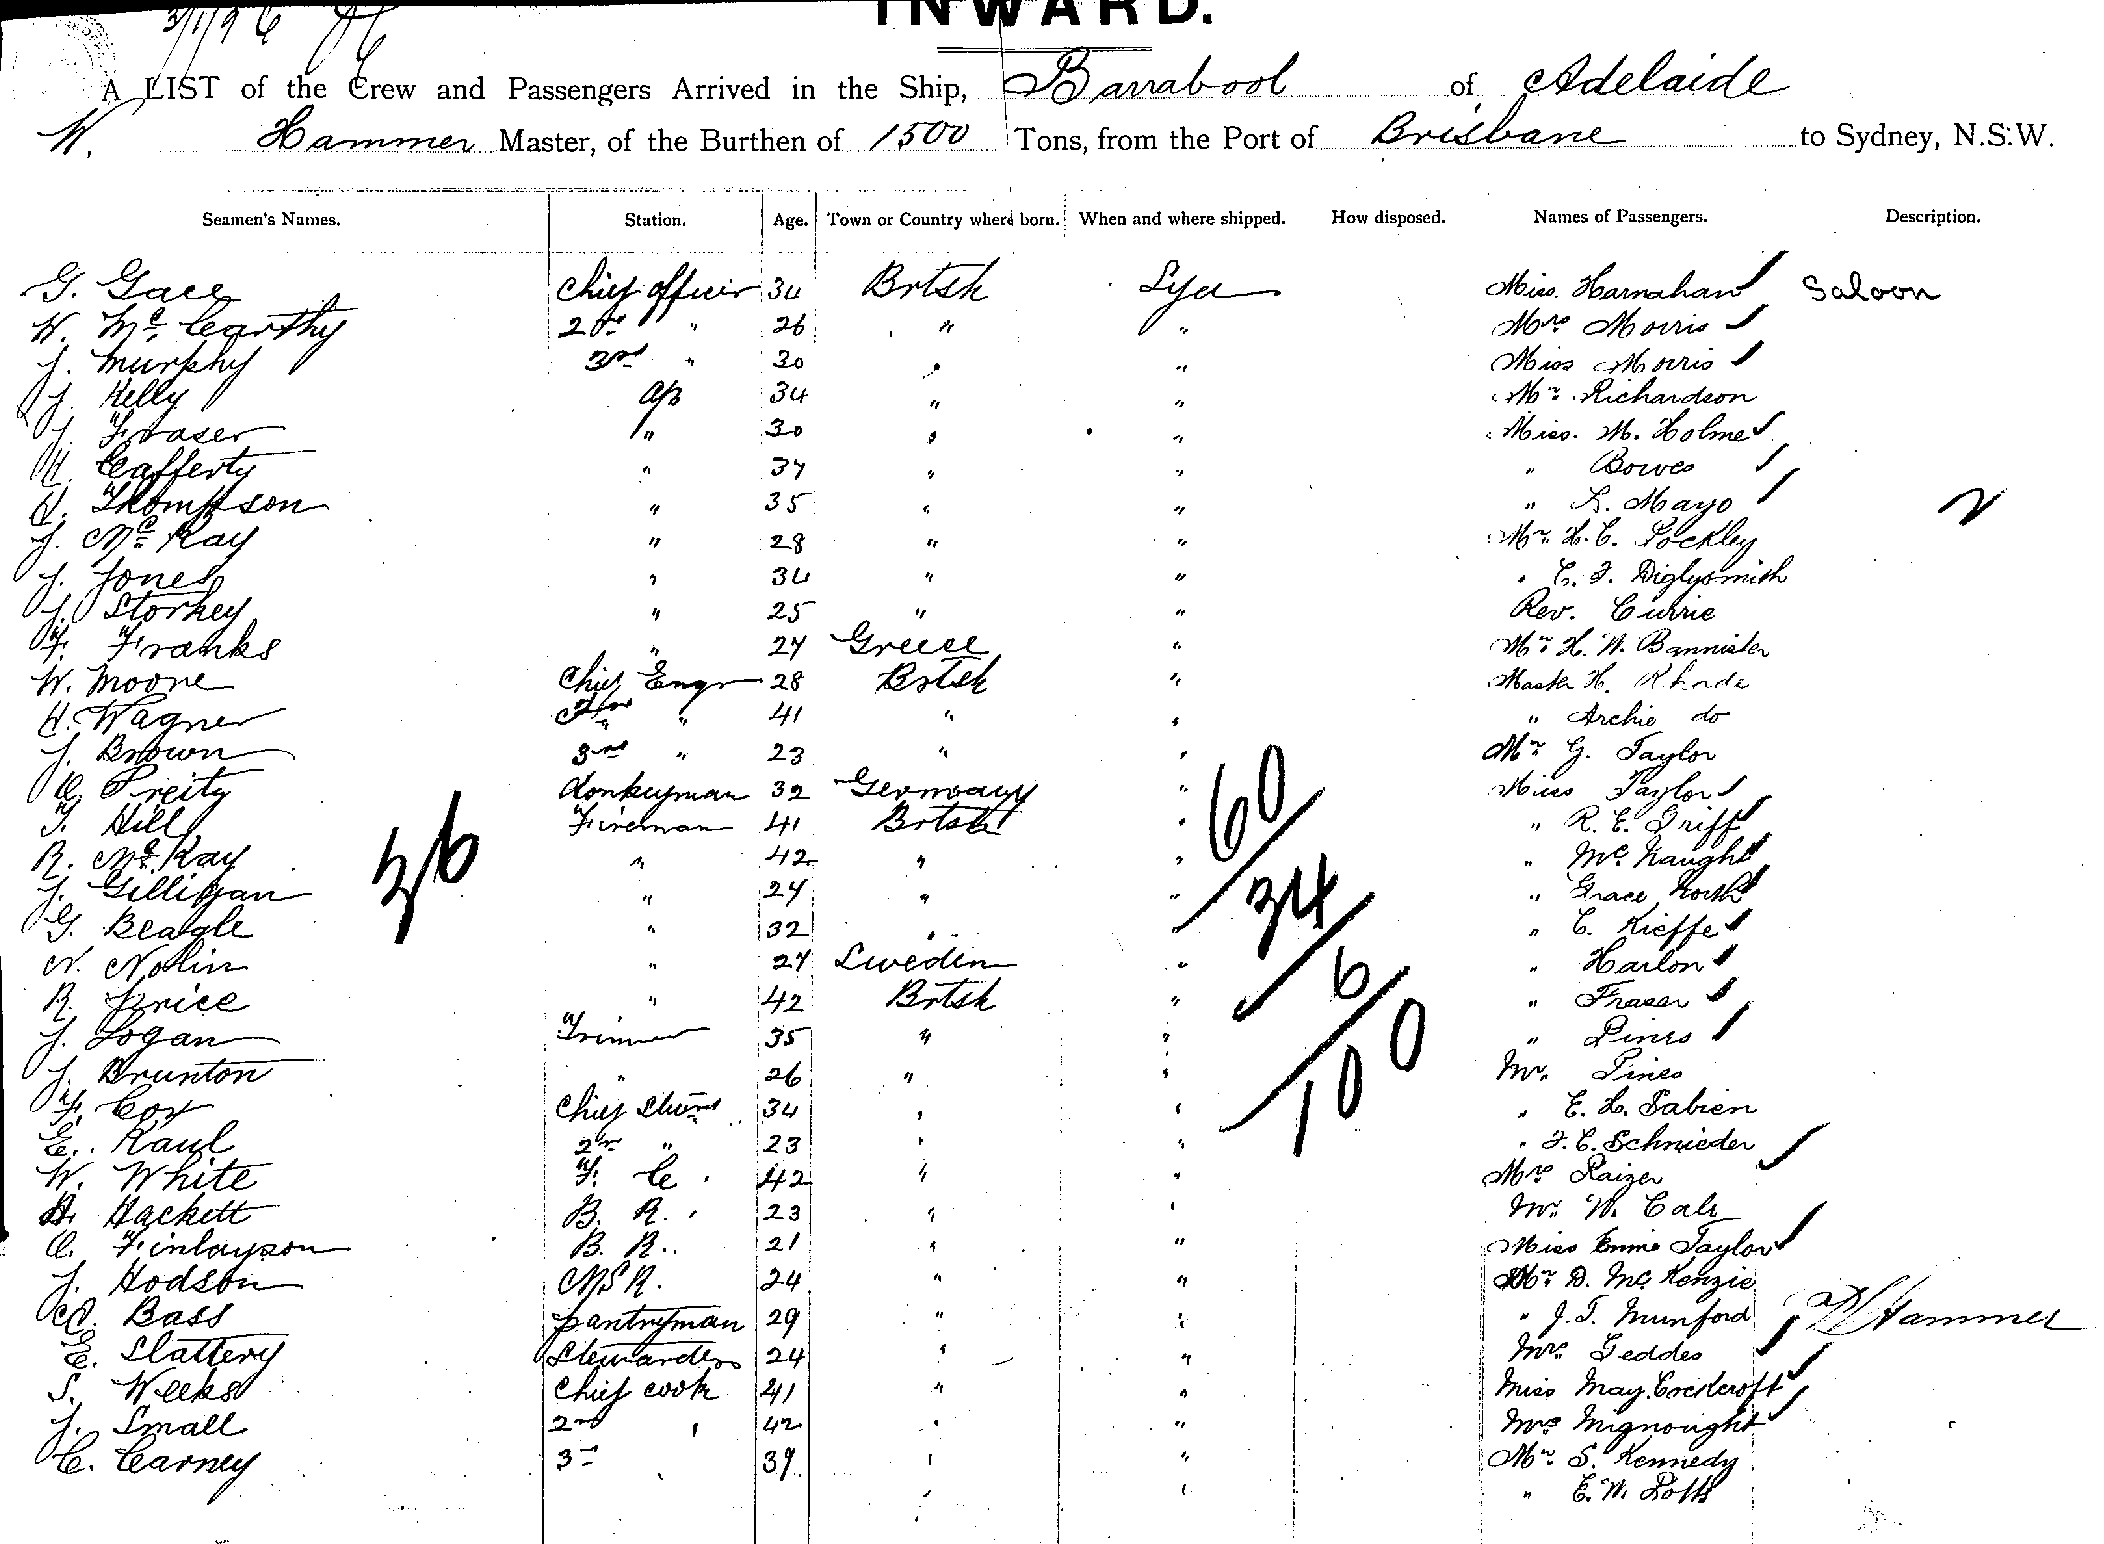 3/1/96
INWARD.
A LIST of the Crew and Passengers Arrived in the Ship, Barrabool of Adelaide
W. Hammer Master, of the Burthen of 1500 Tons, from the Port of Brisbane to Sydney, N.S.W.
Seamen's Names. Station. Age. Town or Country where born. When and where shipped. How disposed. Names of Passengers. Description.
G. Gace Chief officer 34 Brtsh Syd Miss. Harnahan Saloon
W. McCarthy 2nd " 26 " " Mrs Morris
J. Murphy 3rd " 30 " " Miss Morris
J. Kelly AB 34 " " Mr. Richardson
J. Fraser " 30 " " Miss. M. Holme
Cafferty " 37 " " " Bowes
H. Thompson " 35 " " " L. Mayo
J. McKay " 28 " " Mr. H. C. Lockley
J. Jones " 34 " " " C. F. Diglysmith
J. Storkey " 25 " " Rev. Currie
F. Franks " 27 Greece " Mr H. W. Bannister
W. Moore Chief Engr 28 Brtsh " Mastr H. Rhode
H. Wagner 2nd " 41 " " " Archie do
J. Brown 3rd " 23 " " Mr G. Taylor
Preity Donkeyman 32 Germany " Miss Taylor
T. Hill Fireman 41 Brtsh " " R. E. Griff
R. McKay " 42 " " " McNaught
J. Gilligan " 24 " " " Grace North
G. Beagle " 32 " " " C. Kieffe
N. Nolin " 27 Sweden " " Harlon
R. Price " 42 Brtsh " " Fraser
J. Logan Trimmer 35 " " " Pines
J. Brunton " 26 " " Mr. Pines
F. Cox Chief 34 " " " E. L. Fabien
E. Kaul 2nd " 23 " " " F. C. Schnieder
W. White F. C. 42 " " Mrs Raizer
H. Hackett B. R. 23 " " Mr. W. Cale
C. Finlayson B. R. 21 " " Miss Emme Taylor
J. Hodson MSR. 24 " " Mr. D. McKenzie
Bass pantryman 29 " " " J. T. Munford
E. Slattery Stewardess 24 " " Mrs Geddes
S. Weeks Chief cook 41 " " Miss May
J. Small 2nd " 42 " " Mrs Mignought
C. Carney 3rd 39. " " Mr. S. Kennedy
" E. W. Potts
36
60
34
6
100
2
W Hammer